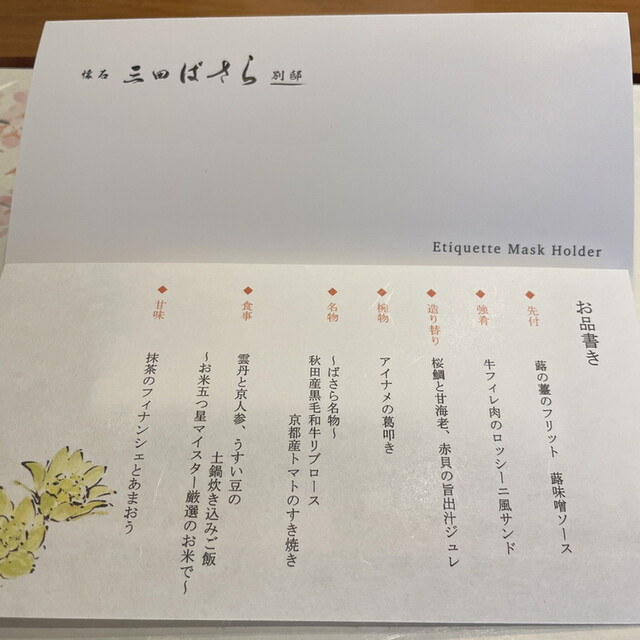 懐石 三田ばさら 別邸
Etiquette Mask Holder
お品書き
◆ 先付
蕗の薹のフリット 蕗味噌ソース
◆ 強肴
牛フィレ肉のロッシーニ風サンド
◆ 造り替り
桜鯛と甘海老、赤貝の旨出汁ジュレ
◆ 椀物
アイナメの葛叩き
◆ 名物
〜ばさら名物〜
秋田産黒毛和牛リブロース
京都産トマトのすき焼き
◆ 食事
雲丹と京人参、うすい豆の
土鍋炊き込みご飯
〜お米五つ星マイスター厳選のお米で〜
◆ 甘味
抹茶のフィナンシェとあまおう